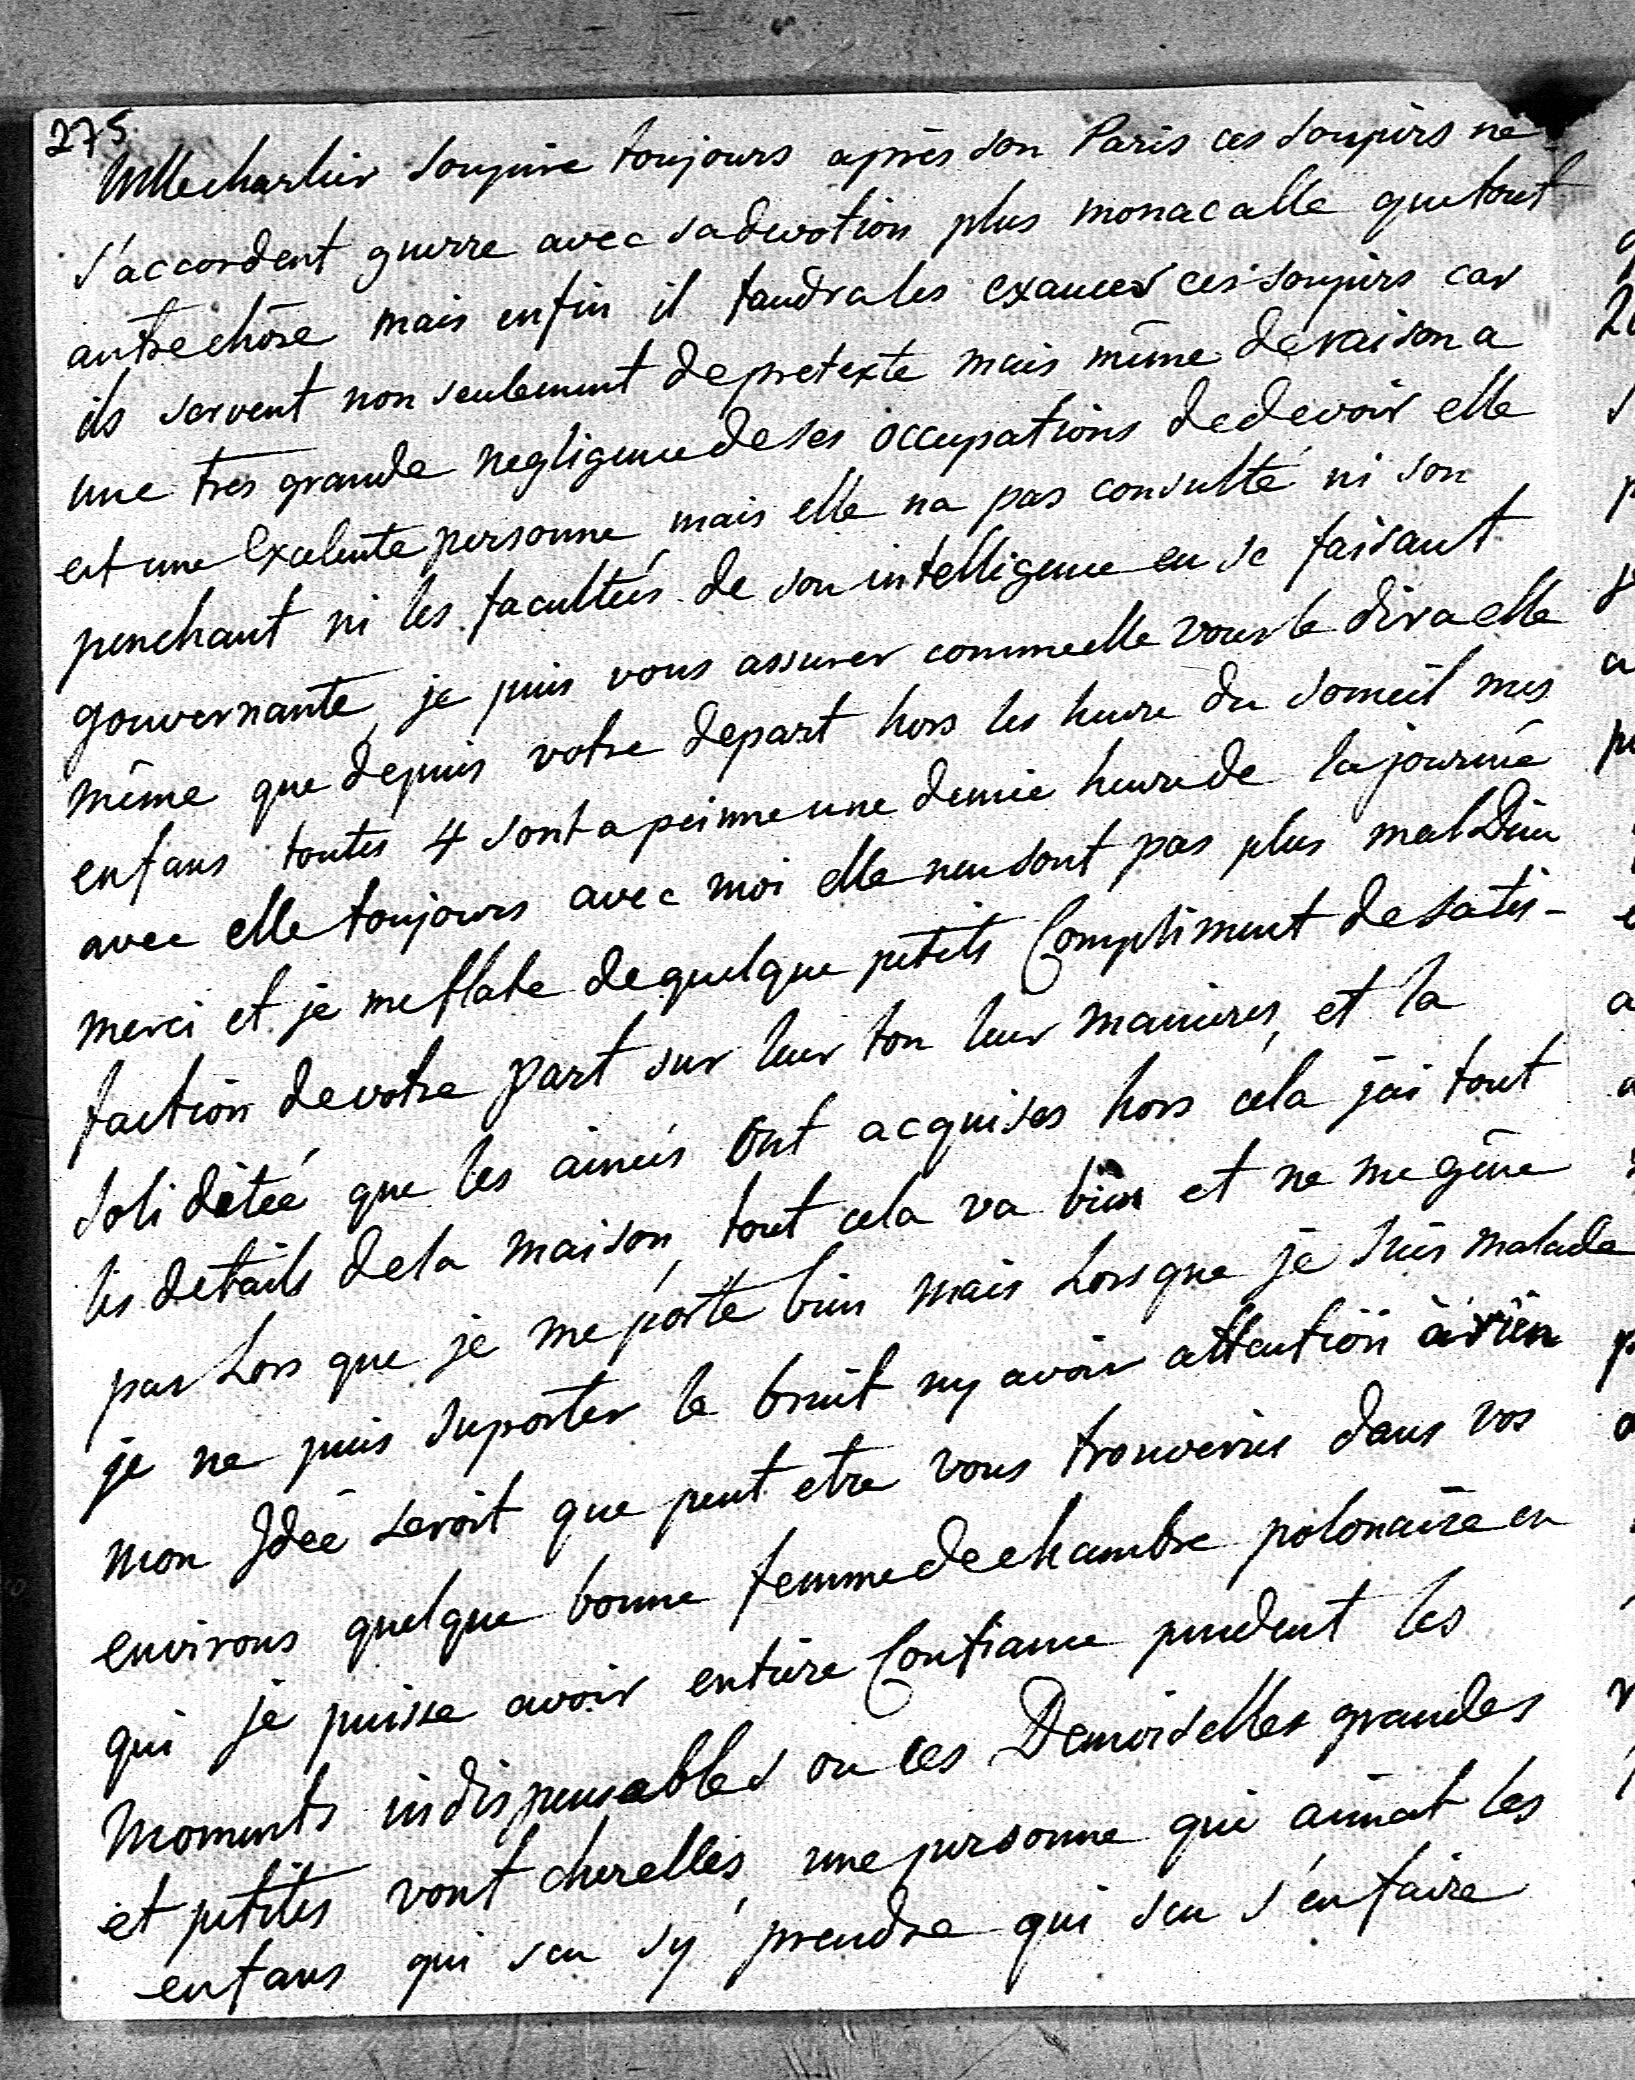 275.
Mlle charlier soupire toujours après son Paris ces soupirs ne
s'accordent guerre avec sa devotion plus monacalle que tout
autre chose mais enfin il faudra les exaucer ces soupirs car
ils servent non seulement de pretexte mais même de raison a
une très grande negligence de ses occupations de devoir elle
est une Excelente personne mais elle na pas consulté ni son
penchant ni les facultées de son intelligence en se faisant
gouvernante, je puis vous assurer comme elle vous le dira elle
même que depuis votre depart hors les heure du someil mes
enfans toutes 4 sont a peinne une demie heure de la journée
avec elle toujours avec moi elle nen sont pas plus mal Dieu
merci et je me flate de quelque petits Compliment de satis-
faction de votre part sur leur ton leur manieres, et la
soliditée que les ainées ont acquises hors cela j'ai tout
les details de la maison, tout cela va bien et ne me gêne
pas Lors que je me porte bien mais Lorsque je suis malade
je ne puis suporter le bruit ny avoir attention à rien
mon Idée seroit que peut etre vous trouveries dans vos
environs quelque bonne femme de chambre polonaise en
qui je puisse avoir entiere Confiance pendent les
moments indispensables ou ces Demoiselles grandes
et petites vont cher elles, une personne qui aimat les
enfans qui seu sy prendre qui seu s'en faire